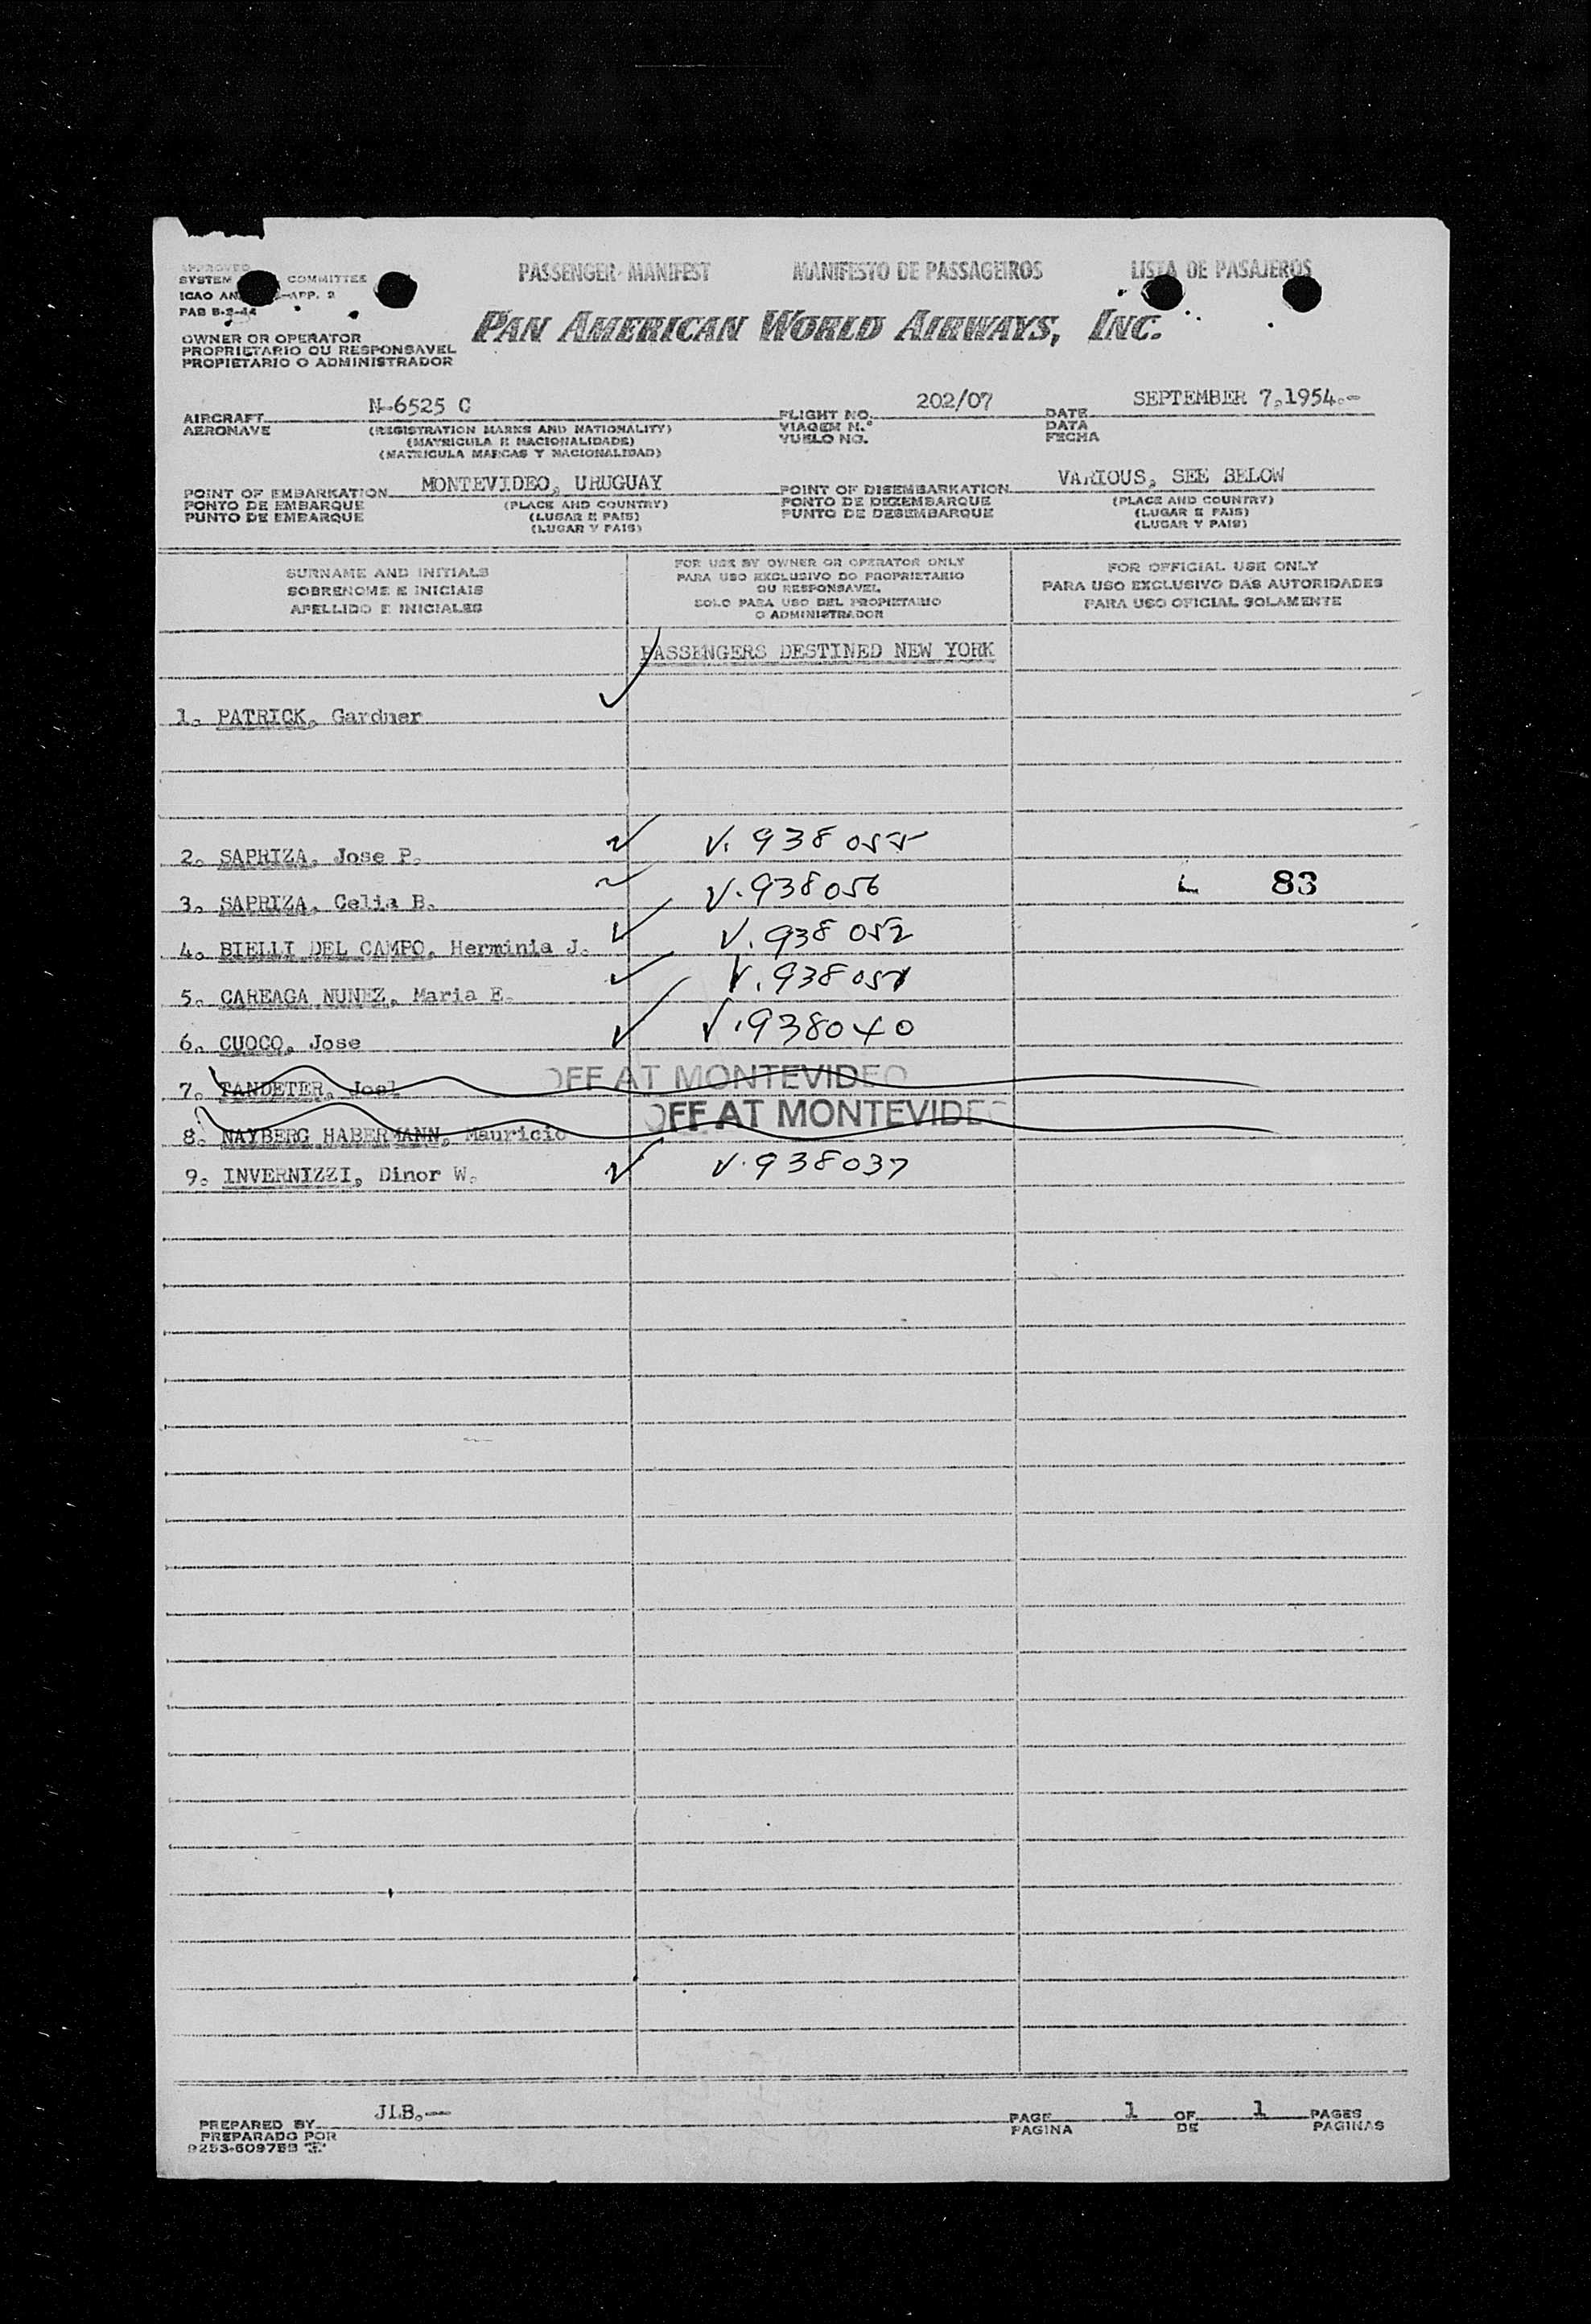 APPROVED
SYSTEM COMMITTEE
ICAO AN APP. 2
PAB B-2-44
PASSENGER MANIFEST MANIFESTO DE PASSAGEIROS LISTA DE PASAJEROS
PAN AMERICAN WORLD AIRWAYS, INC.
OWNER OR OPERATOR
PROPRIETARIO OU RESPONSAVEL
PROPIETARIO O ADMINISTRADOR
AIRCRAFT N-6525 C FLIGHT NO. 202/07 DATE SEPTEMBER 7,1954.-
AERONAVE (REGISTRATION MARKS AND NATIONALITY) VIAGEM N.° DATA
(MATRICULA E NACIONALIDADE) VUELO NO. FECHA
(MATRICULA MARCAS Y NACIONALIDAD)
POINT OF EMBARKATION MONTEVIDEO, URUGUAY POINT OF DISEMBARKATION VARIOUS, SEE BELOW
PONTO DE EMBARQUE (PLACE AND COUNTRY) PONTO DE DEZEMBARQUE (PLACE AND COUNTRY)
PUNTO DE EMBARQUE (LUGAR E PAIS) PUNTO DE DESEMBARQUE (LUGAR E PAIS)
(LUGAR Y PAIS) (LUGAR Y PAIS)
SURNAME AND INITIALS
SOBRENOME E INICIAIS
APELLIDO E INICIALES
FOR USE BY OWNER OR OPERATOR ONLY
PARA USO EXCLUSIVO DO PROPRIETARIO
OU RESPONSAVEL
SOLO PARA USO DEL PROPIETARIO
O ADMINISTRADOR
FOR OFFICIAL USE ONLY
PARA USO EXCLUSIVO DAS AUTORIDADES
PARA USO OFICIAL SOLAMENTE
PASSENGERS DESTINED NEW YORK
1. PATRICK, Gardner
2. SAPRIZA, Jose P. V. 938055
3. SAPRIZA, Celia B. V. 938056 L 83
4. BIELLI DEL CAMPO, Herminia J. V. 938052
5. CAREAGA NUNEZ, Maria E. V. 938051
6. CUOCO, Jose V. 938040
7. TANDETER, Joel OFF AT MONTEVIDEO
8. NAYBERG HABERMANN, Mauricio OFF AT MONTEVIDEO
9. INVERNIZZI, Dinor W. V. 938037
PREPARED BY JLB.- PAGE 1 OF 1 PAGES
PREPARADO POR PAGINA DE PAGINAS